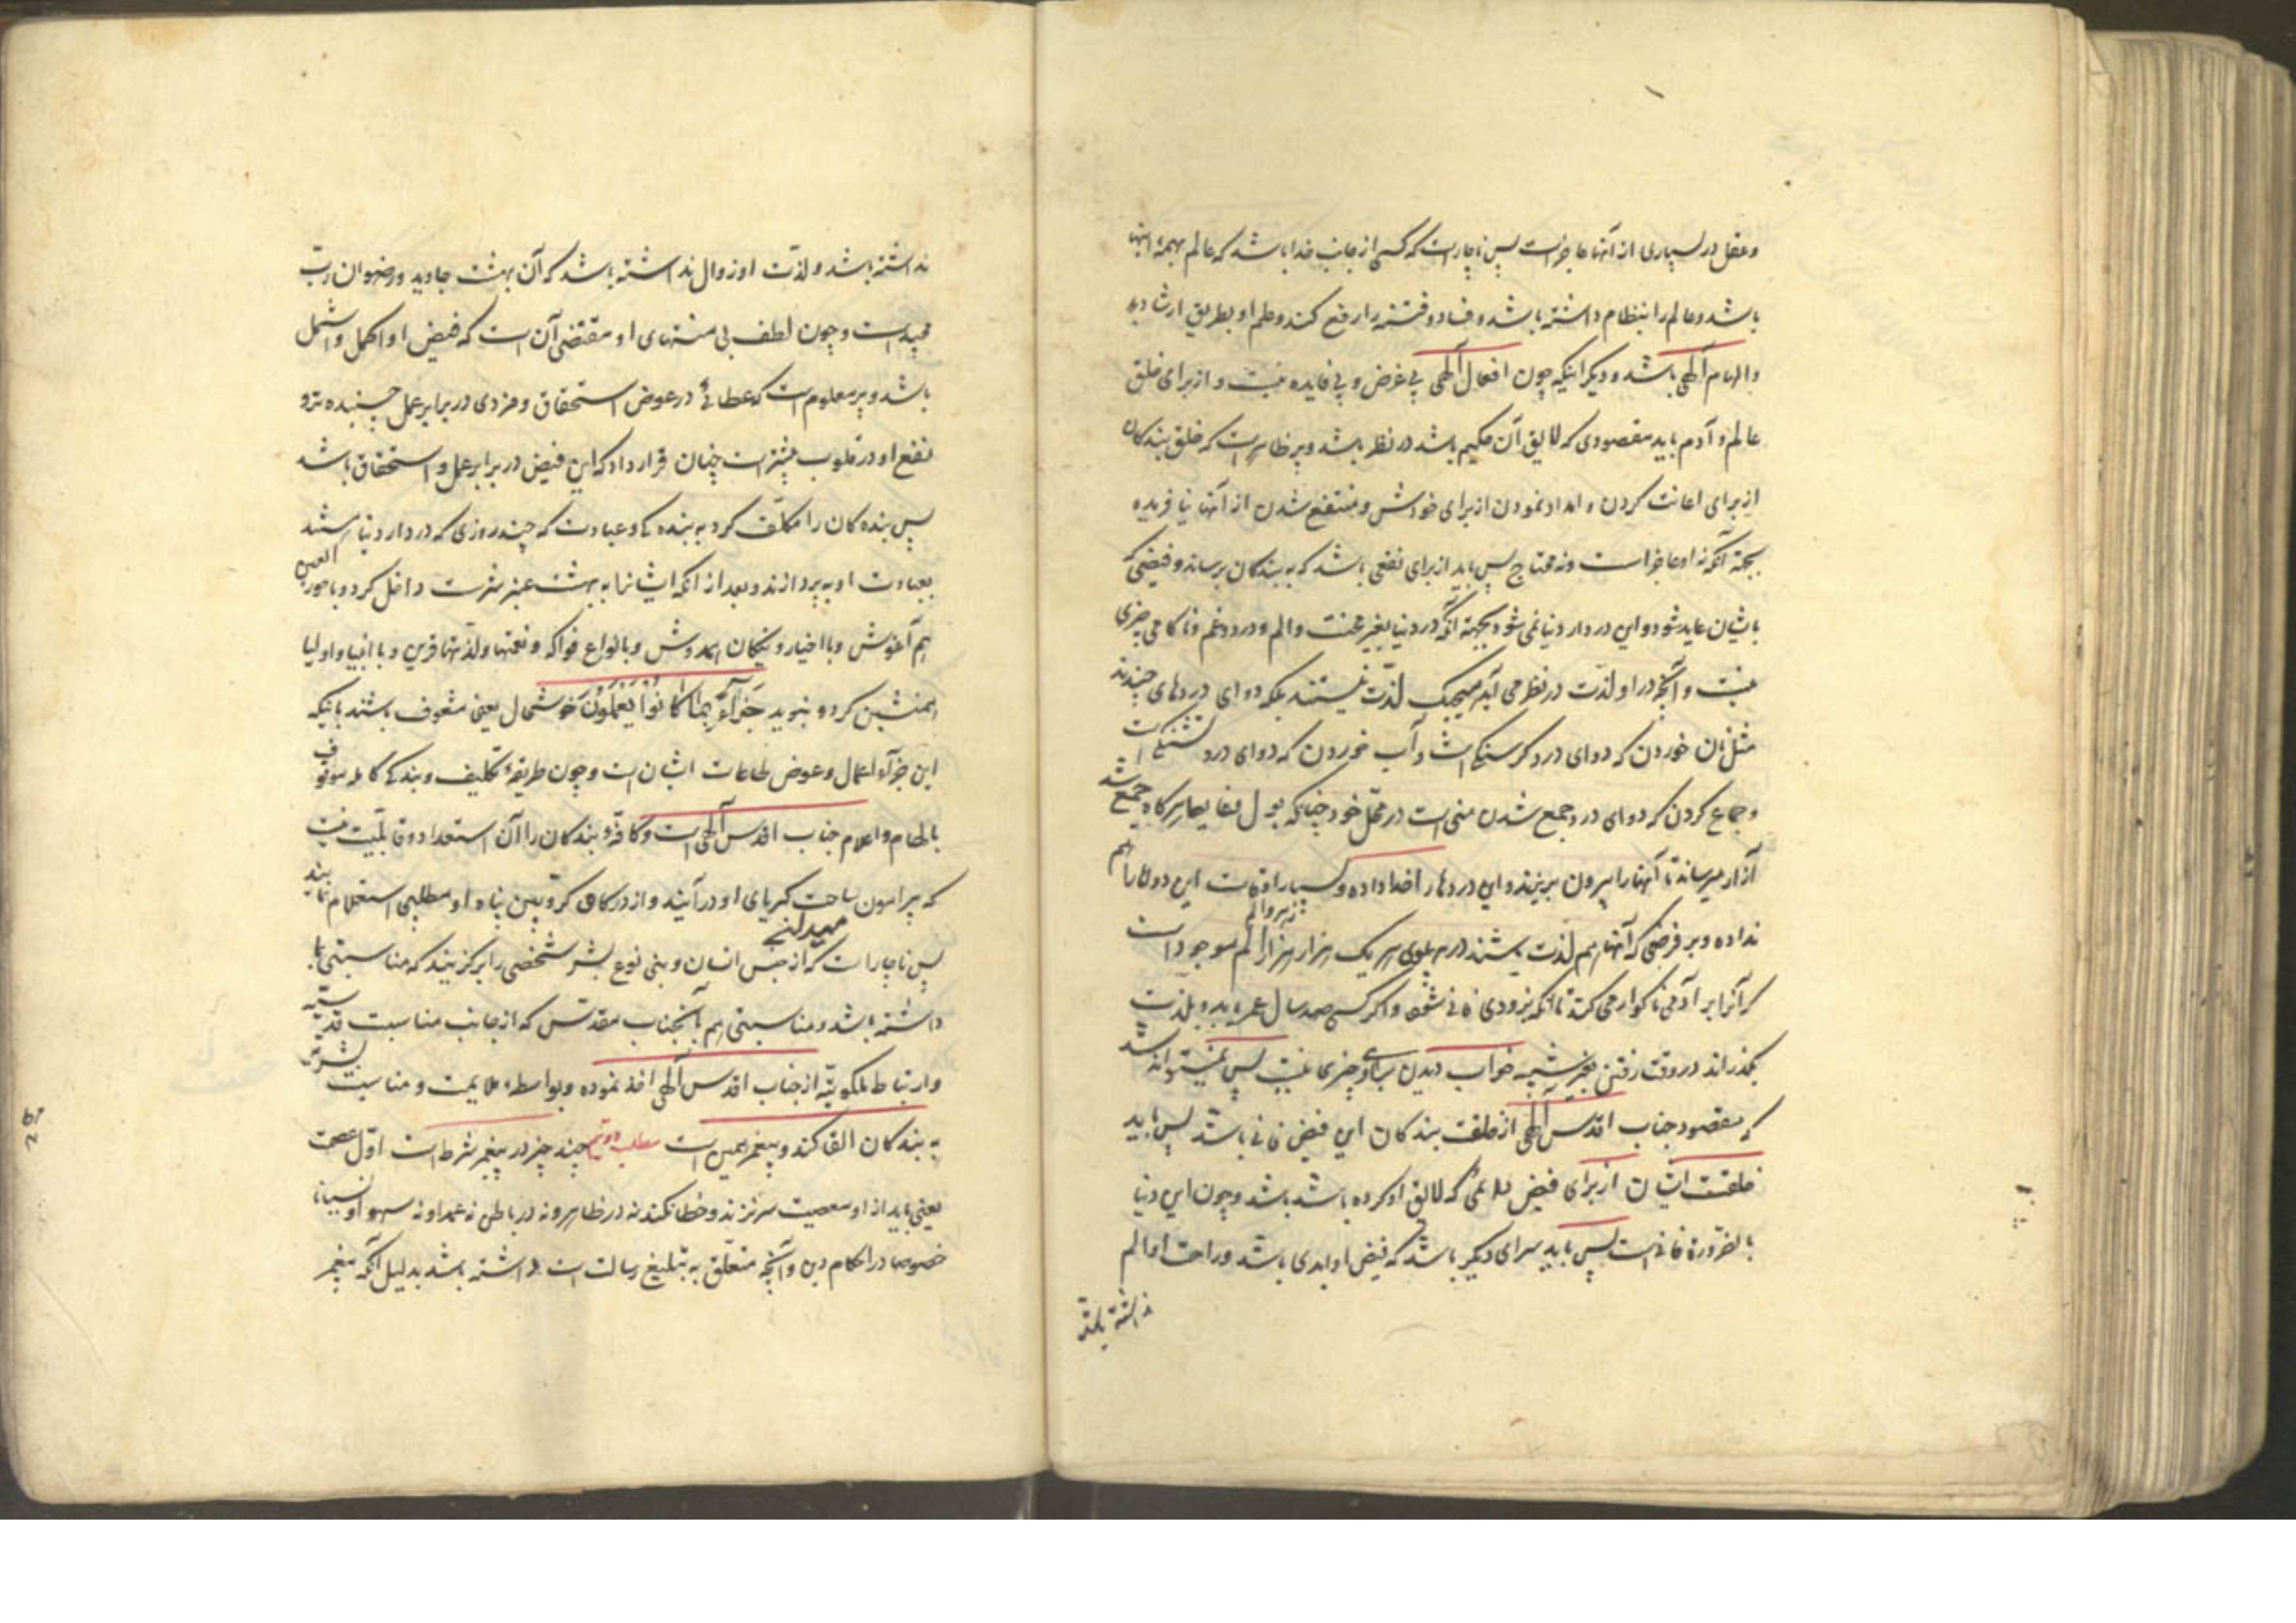 و عقل در بسیاری از آنها عاجز است پس ناچار است که کسی از جانب خدا باشد که عالم بهمهٔ اینها
باشد و عالم را بنظام داشته باشد و فساد و فتنه را رفع کند و علم او بطریق ارشاد
و الهام آلهی باشد و دیکر اینکه چون افعال آلهی بی غرض و بی فایده نیست و از برای خلق
عالم و آدم باید مقصودی که لایق آن حکیم باشد در نظر باشد و پر ظاهر است که خلق بندکان
از برای اعانت کردن و امداد نمودن از برای خودش و منتفع شدن از آنها نیافریده
بجهة آنکه نه او عاجز است و نه محتاج پس باید از برای نفعی باشد که به بندکان برساند و فیضی که
باشان عاید شود و این در دار دنیا نمی شود بجهة آنکه در دنیا بغیر محنت و الم و درد و غم و ناکامی چیزی
نیست و آنچه در او لذت در نظر می آید هیچیک لذت نیستند بلکه دوای دردهای چندند
مثل نان خوردن که دوای درد کرسنکی است و آب خوردن که دوای درد تشنکی است
و جماع کردن که دوای درد جمع شدن منی است در محل خود چنانکه بول هرکاه جمع شد
آزار میرساند تا آنها را بیرون بریزند و این دردها را خدا داده و بسیار اوقات این دواها را هم
نداده و بر فرضی که آنها هم لذت باشند در پهلوی هر یک هزار هزار الم موجود است
که آنرا بر آدمی ناکوار می کند تا آنکه بزودی فانی شود و اکر کسی صد سال عمر یابد و بلذت
بکذراند در وقت رفتن بغیر شبیه خواب دیدن برای او چیزی نیست پس نمیتواند شد
که مقصود جناب اقدس آلهی از خلقت بندکان این فیض فانی باشد پس باید
خلقت ایشان از برای فیض دائمی که لایق او کرده باشد باشد و چون این دنیا
بالضرورة فانی است پس باید سرای دیکر باشد که فیض او ابدی باشد و راحت او الم
نداشته باشد
نداشته باشد و لذت او زوال نداشته باشد که آن بهشت جاوید و رضوان رب
مجید است و چون لطف بی منتهای او مقتضی آن است که فیض او اکمل و اشمل
باشد و پر معلوم است که عطائی در عوض استحقاق و مزدی در برابر عمل چسبنده تر و
نفع او در قلوب بیشتر است چنان قرار داد که این فیض در برابر عمل و استحقاق باشد
پس بنده کان را مکلف کرد به بنده کی و عبادت که چند روزی که در دار دنیا باشند
بعبادت او بپردازند و بعد از آنکه ایشانرا به بهشت عنبر سرشت داخل کرد و با حور العین
هم آغوش و با اخیار و نیکان همدوش و بانواع فواکه و نعتها و لذتها قرین و با انبیا و اولیا
همنشین کرد و بنوید جَزَآءً بِمَا کَانُوا یَعْمَلُونَ خوشحال یعنی مشعوف باشند باینکه
این جزآء اعمال و عوض طاعات ایشان است و چون طریقهٔ تکلیف و بندکی کامله موقوف
بالهام و اعلام جناب اقدس آلهی است و کافهٔ بندکان را آن استعداد و قابلیت نیست
که پیرامون ساحت کبریای او درآیند و از درکاه کروبین پناه او مطلبی استعلام نمایند
پس ناچار است که از جنس انسان و بنی نوع بشر شخصی را برکزیند که مناسبتی با
داشته باشد و مناسبتی هم بآنجناب مقدس که از جانب مناسبت قدسیه
و ارتباط ملکوتیه از جناب اقدس آلهی اخذ نموده و بواسطهٔ ملایمت و مناسبت بشریت
به بندکان القا کند و پیغمبر همین است مطلب دویم چند چیز در پیغمبر شرط است اول عصمت
یعنی باید از او معصیت سر نزند و خطا نکند نه در ظاهر و نه در باطن نه عمدا و نه سهوا و نسیانا
خصوصا در احکام دین و آنچه متعلق به تبلیغ رسالت است داشته باشد بدلیل آنکه پیغمبر